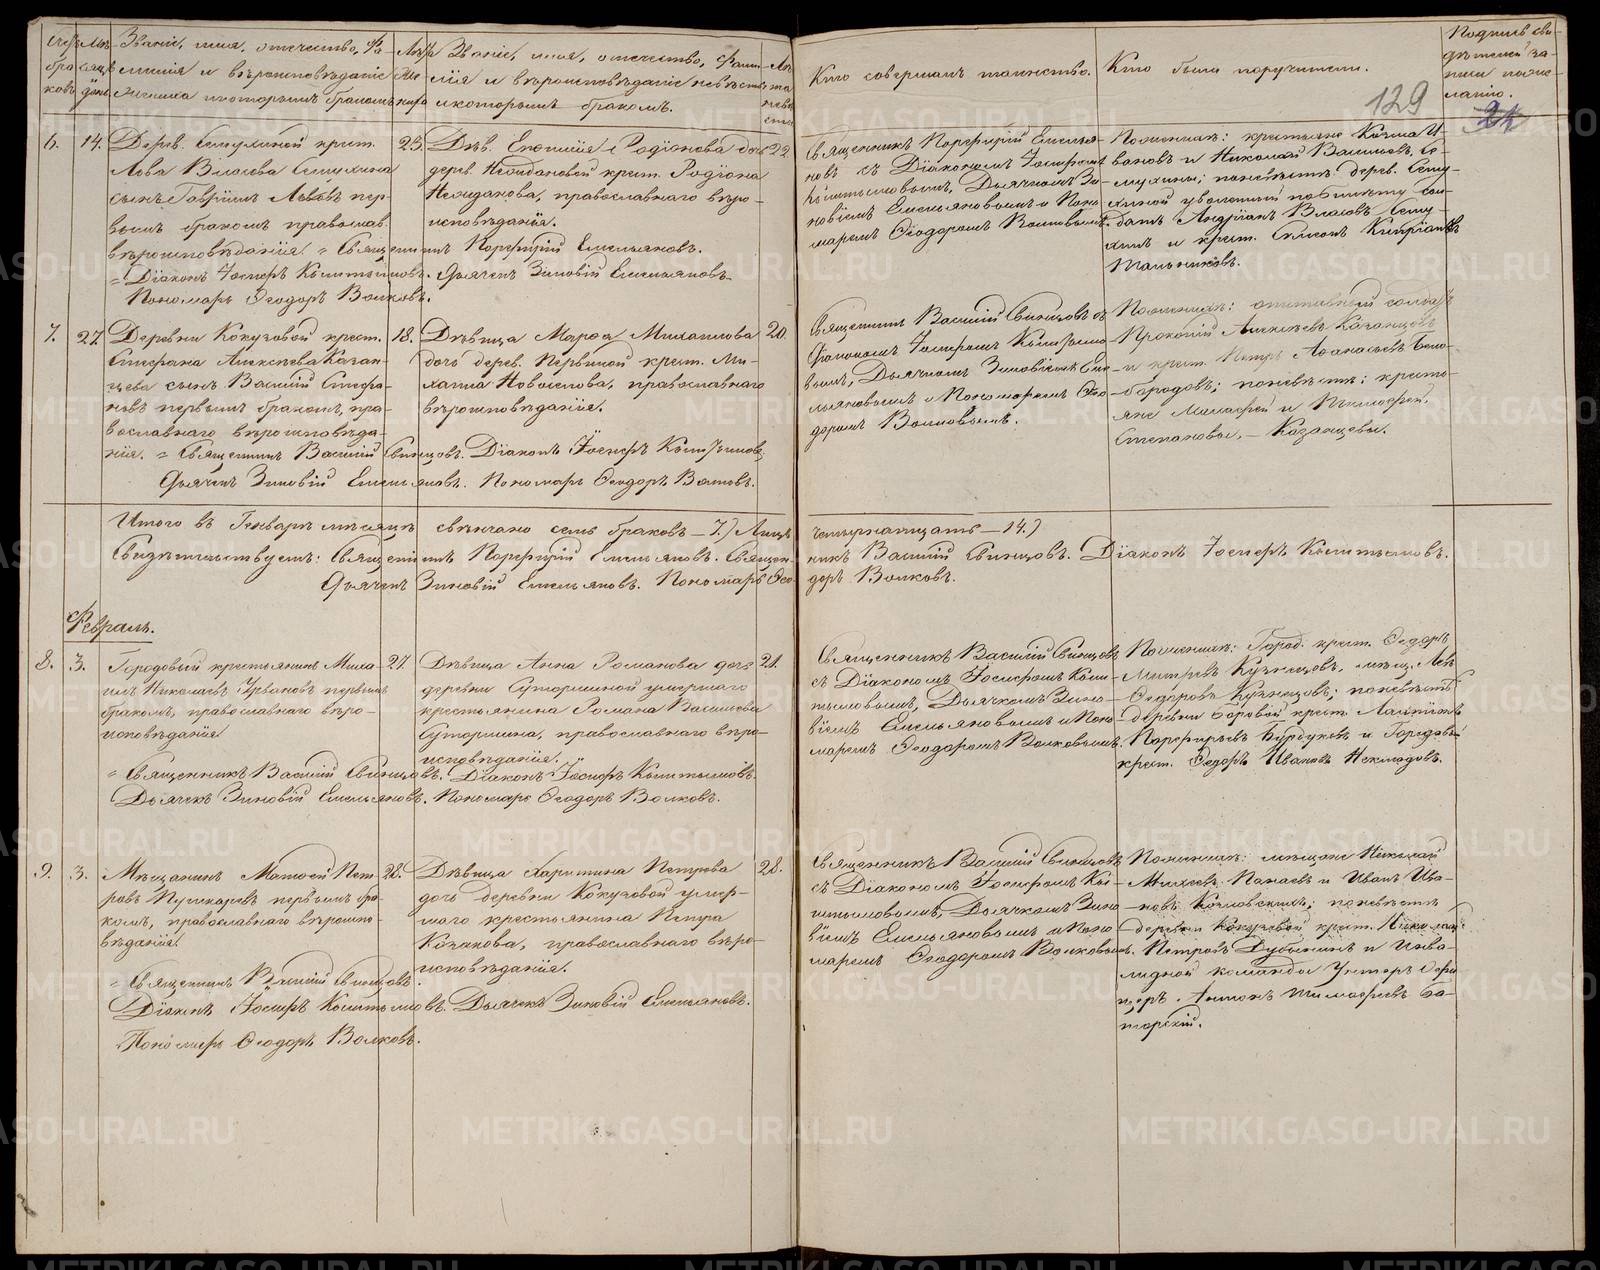 Счетъ браковъ
Мѣсяцъ день
Званіе, имя, отечество, фа-
милія и вѣроисповѣданіе
жениха и которымъ бракомъ
Лѣта жениха
Званіе, имя, отечество, фами-
лія и вѣроисповѣданіе невѣсты
и которымъ бракомъ.
Лѣта невѣсты
Кто совершалъ таинство.
Кто были поручители.
Подпись сви-
дѣтелей за-
писи по же-
ланію.
129
21
6.
14.
Дерев. крест.
Льва Власова
сынъ Гавріилъ Львовъ пер-
вымъ бракомъ православ.
вѣроисповѣданія. = Священникъ Порфирій Емельяновъ.
= Діаконъ Іосифъ Кыштымовъ. Дьячекъ Зиновій Емельяновъ
Пономарь Ѳеодоръ Волковъ.
23.
Дѣв. Родіонова дочь
дерев. крест. Родіона
православнаго вѣро-
исповѣданія.
22.
Священникъ Порфирій Емелья-
новъ съ Діакономъ Іосифомъ
Кыштымовымъ, Дьячкомъ Зи-
новіемъ Емельяновымъ и Поно-
маремъ Ѳеодоромъ Волковымъ.
По женихѣ: крестьяне Козма И-
вановъ и Николай Васильевъ
по невѣстѣ дерев.
уволенный по билету сол-
датъ Андріанъ Власовъ
и крест. Симеонъ Кипріановъ
7.
27.
Деревни Кокузовой крест.
Стефана Алексѣева Казан-
цева сынъ Василій Стефа-
новъ первымъ бракомъ, пра-
вославнаго вѣроисповѣда-
нія. = Священникъ Василій Свинцовъ. Діаконъ Іосифъ Кыштымовъ,
Дьячекъ Зиновій Емельяновъ. Пономарь Ѳеодоръ Волковъ.
18.
Дѣвица Марѳа Михаилова
дочь дерев. Первиной крест. Ми-
хаила Новоселова, православнаго
вѣроисповѣданія.
20.
Священникъ Василій Свинцовъ съ
Діакономъ Іосифомъ Кыштымо-
вымъ, Дьячкомъ Зиновіемъ Еме-
льяновымъ и Пономаремъ Ѳео-
доромъ Волковымъ.
По женихѣ: отставной солдатъ
Прокопій Алексѣевъ Казанцевъ
и крест. Петръ Аѳанасьевъ Бело-
бородовъ; по невѣстѣ: кресть-
яне и Тимоѳей
Степановы, — Казанцевы.
Итого въ Генварѣ мѣсяцѣ свѣнчано семь браковъ — 7.) Лицъ четырнатцать — 14.)
Свидѣтельствуемъ: Священникъ Порфирій Емельяновъ. Священникъ Василій Свинцовъ. Діаконъ Іосифъ Кыштымовъ.
Дьячекъ Зиновій Емельяновъ. Пономарь Ѳеодоръ Волковъ.
Февраль.
8.
3.
Городовый крестьянинъ Миха-
илъ Николаевъ Ивановъ первымъ
бракомъ, православнаго вѣро-
исповѣданія
= Священникъ Василій Свинцовъ. Діаконъ Іосифъ Кыштымовъ.
Дьячекъ Зиновій Емельяновъ. Пономарь Ѳеодоръ Волковъ.
27.
Дѣвица Анна Романова дочь
деревни Суторминой умершаго
крестьянина Романа Васильева
Сутормина, православнаго вѣро-
исповѣданія.
21.
Священникъ Василій Свинцовъ
съ Діакономъ Іосифомъ Кыш-
тымовымъ, Дьячкомъ Зино-
віемъ Емельяновымъ и Поно-
маремъ Ѳеодоромъ Волковымъ.
По женихѣ: Город. крест. Ѳедоръ
Кузнецовъ, мѣщ. Левъ
Ѳедоровъ Кузнецовъ; по невѣстѣ
деревни Боровой крест.
Порфирьевъ Бурдуковъ и Городовый
крест. Ѳедоръ Ивановъ Некладовъ.
9.
3.
Мѣщанинъ Матѳей Пет-
ровъ Пушкаревъ первымъ бра-
комъ, православнаго вѣроиспо-
вѣданія.
= Священникъ Василій Свинцовъ.
Діаконъ Іосифъ Кыштымовъ. Дьячекъ Зиновій Емельяновъ.
Пономарь Ѳеодоръ Волковъ.
28.
Дѣвица Харитина Петрова
дочь деревни Кокузовой умер-
шаго крестьянина Петра
Казакова, православнаго вѣро-
исповѣданія.
28.
Священникъ Василій Свинцовъ
съ Діакономъ Іосифомъ Кы-
штымовымъ, Дьячкомъ Зино-
віемъ Емельяновымъ и Поно-
маремъ Ѳеодоромъ Волковымъ.
По женихѣ: мѣщане Николай
Михеевъ Панаевъ и Иванъ Ива-
новъ Козловскихъ; по невѣстѣ
деревни Кокузовой крест. Николай
Петровъ Дубынинъ и Инва-
лидной команды Унтеръ Офи-
церъ. Антонъ Тимоѳеевъ Ба-
торскій.
METRIKI.GASO-URAL.RU